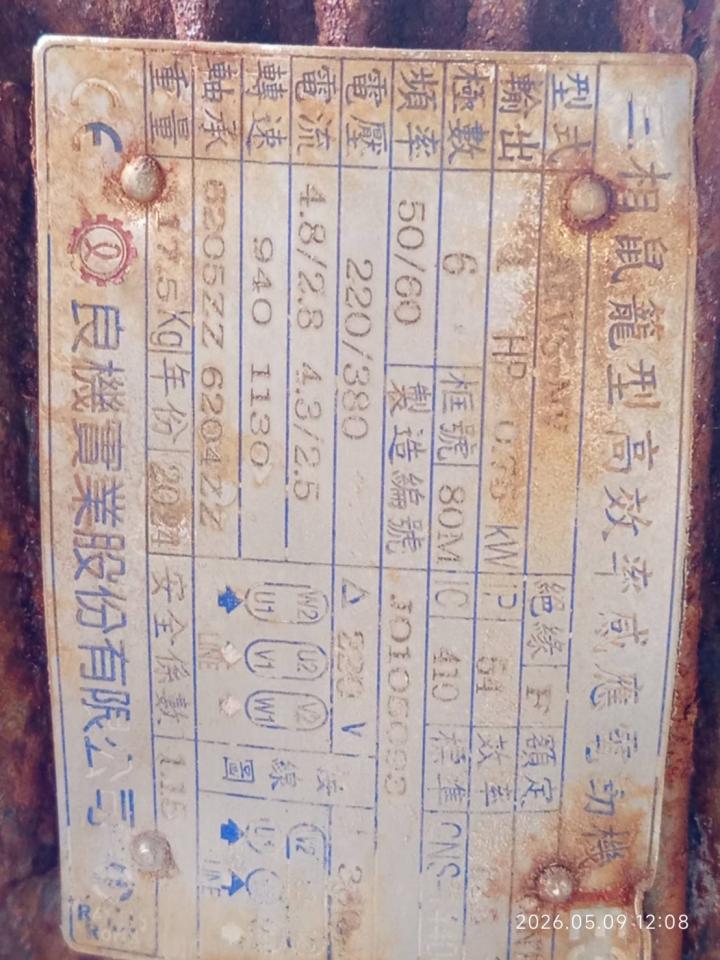 三相鼠籠型高效率感應電動機
型式 絕緣 F 額定
輸出 HP kW IP 54 效率
極數 6 框號 80M IC 410 標準 CNS
頻率 50/60 製造編號 J0105093
電壓 220/380 △ 220 V
電流 4.8/2.8 4.3/2.5 接線圖
轉速 940 1130
W2 U2 V2
U1 V1 W1
LINE
軸承 6205ZZ 6204ZZ
LINE
重量 17.5Kg 年份 安全係數 1.15
CE 良機實業股份有限公司
2026.05.09 12:08